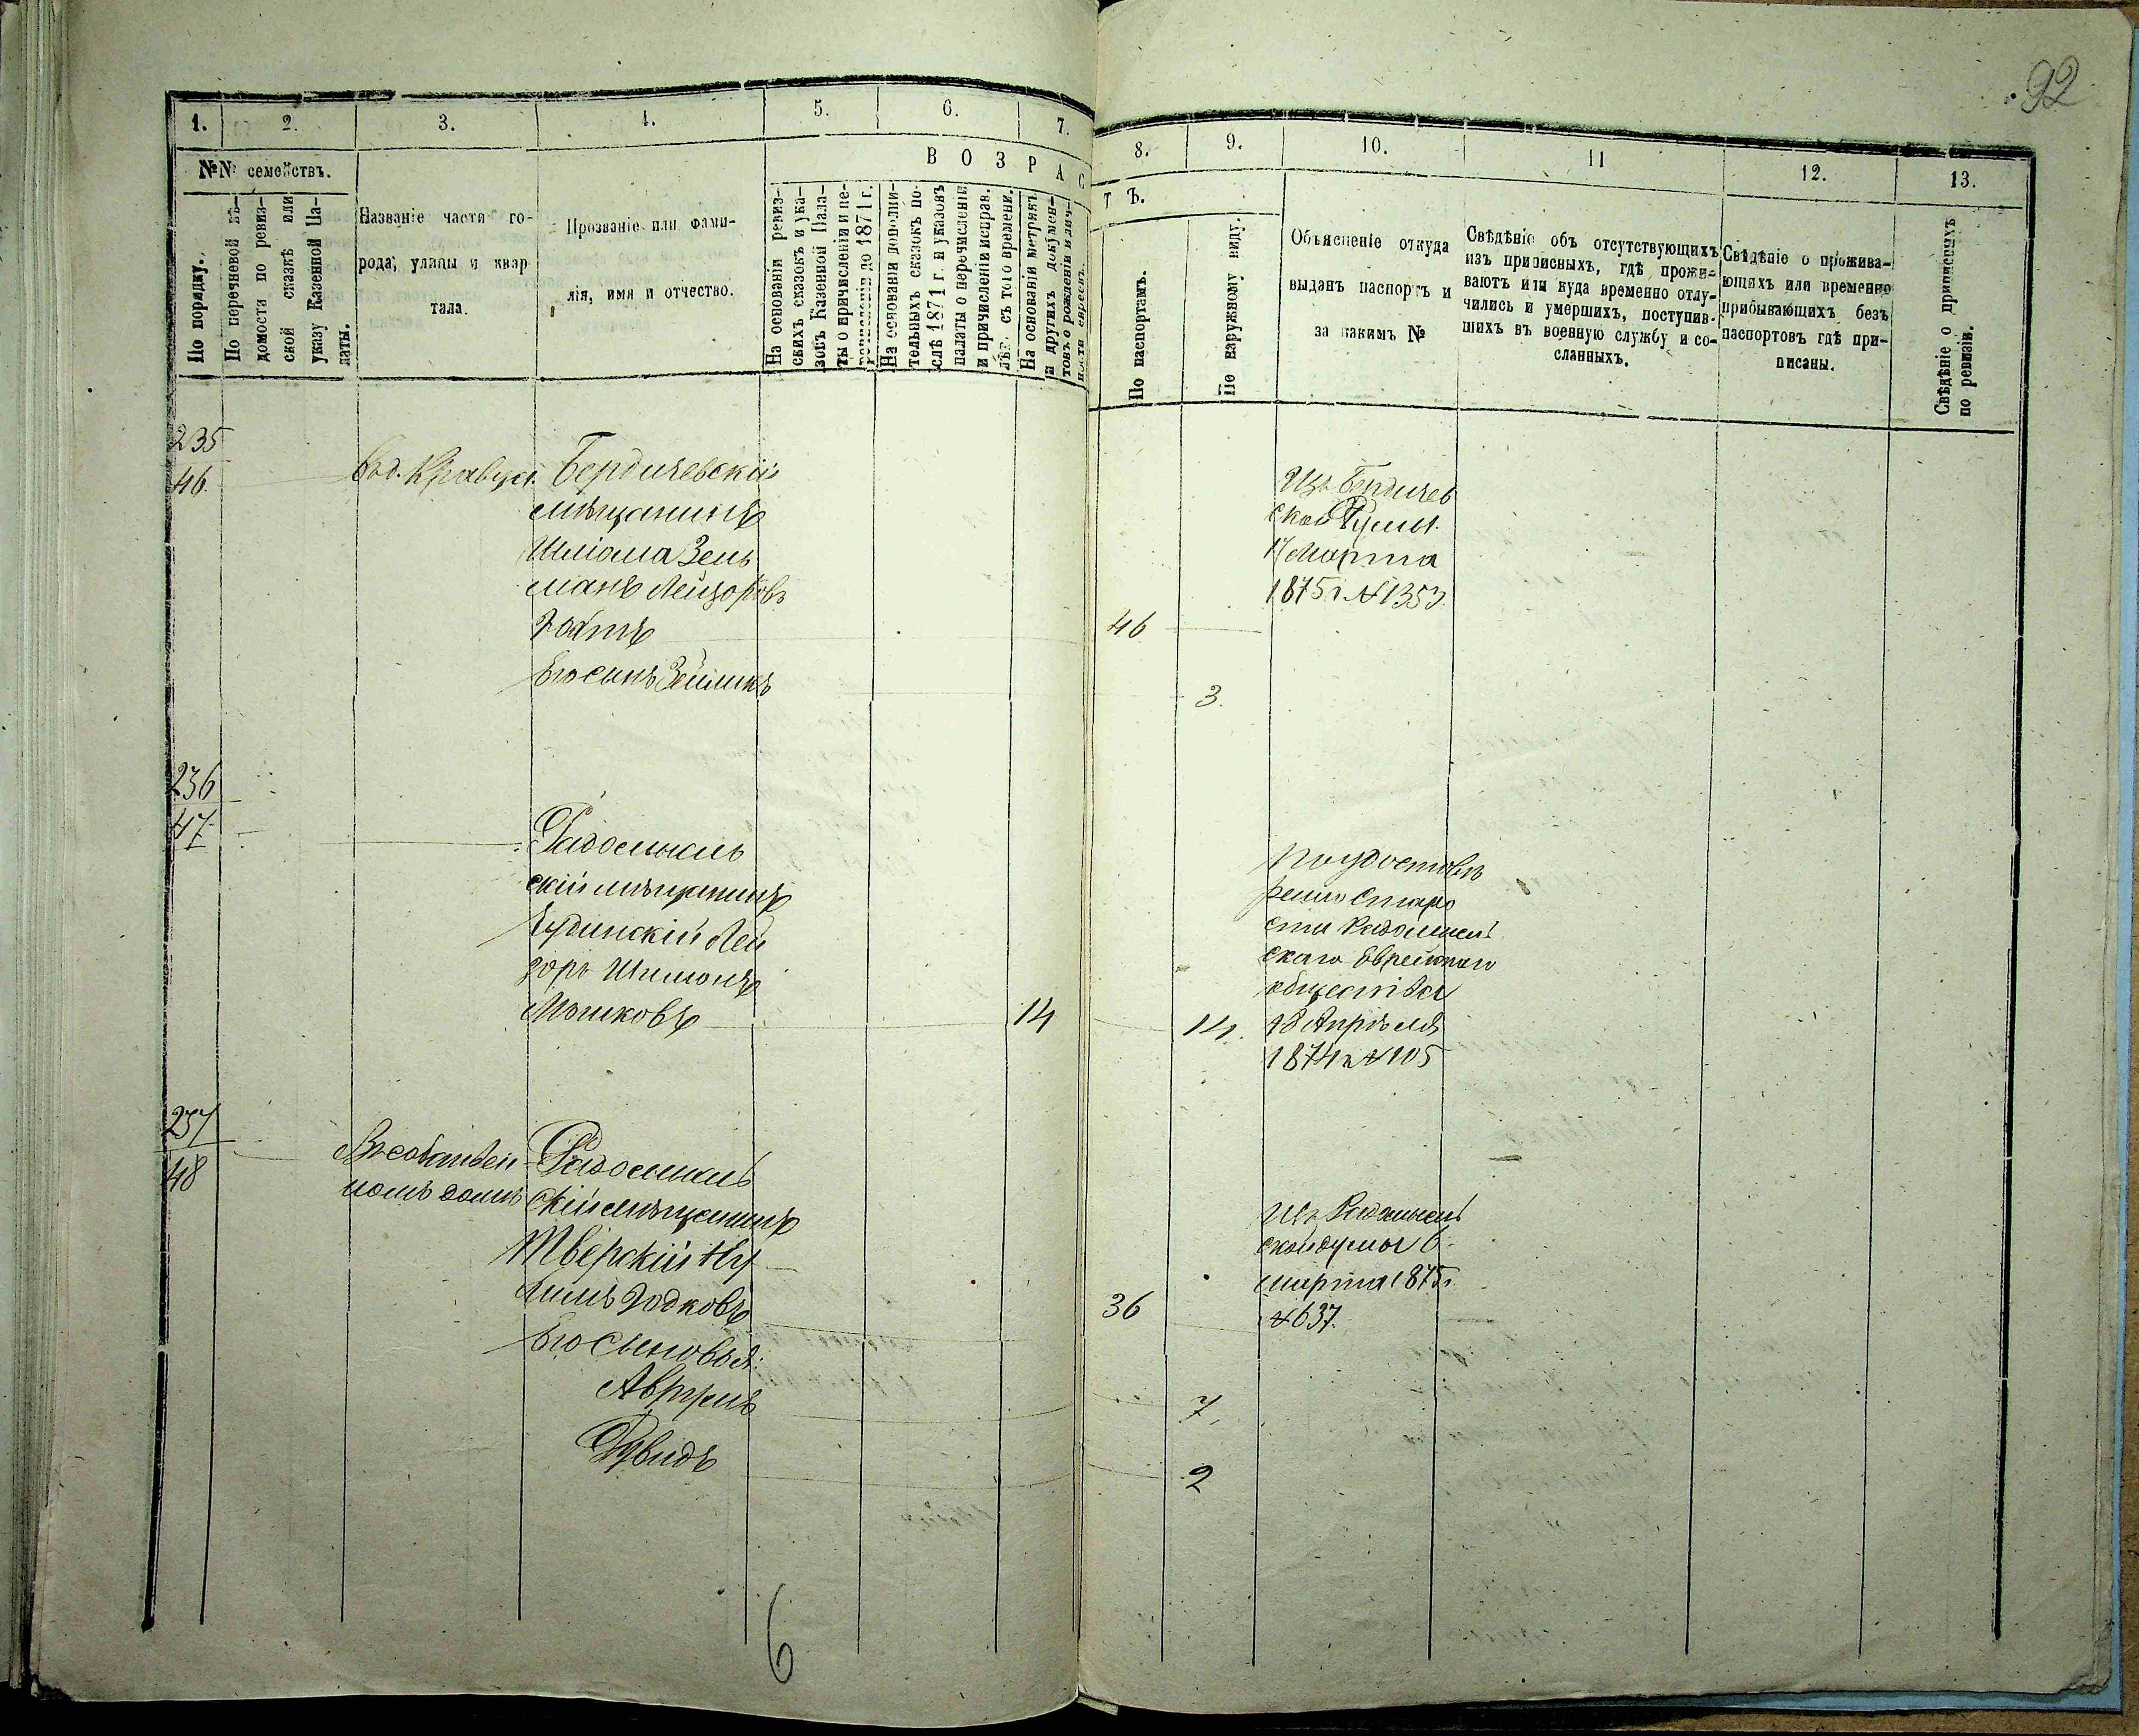 92
1. 2. 3. 4. 5. 6. 7. 8. 9. 10. 11 12. 13.
№№ семействъ.
По порядку.
По перечневой вѣ-
домости по ревиз-
ской сказкѣ или
указу Казенной Па-
латы.
Названіе части го-
рода, улицы и квар
тала.
Прозваніе или фами-
лія, имя и отчество.
В О З Р А С
Т Ъ.
На основаніи ревиз-
скихъ сказокъ и ука-
зовъ Казенной Пала-
ты о причисленіи и пе-
речисленіи до 1871 г.
На основаніи дополни-
тельныхъ сказокъ по-
слѣ 1871 г. и указовъ
палаты о перечисленіи
и причисленіи исправ.
лѣт. съ того времени.
На основаніи метрикъ
и других докумен-
товъ о рожденіи и лич-
ности евреевъ.
По паспортамъ.
По наружному виду.
Объясненіе откуда
выданъ паспортъ и
за какимъ №
Свѣдѣніе объ отсутствующихъ
изъ приписныхъ, гдѣ прожи-
ваютъ или куда временно отлу-
чились и умершихъ, поступив-
шихъ въ военную службу и со-
сланныхъ.
Свѣдѣніе о прожива-
ющихъ или временно
прибывающихъ безъ
паспортовъ гдѣ при-
писаны.
Свѣдѣніе о приписныхъ
по ревизіи.
235
46
Бердичевскій
мѣщанинъ
Шліома Зель
манъ Лейзоровъ
46
Его сынъ Зейликъ
3.
Изъ Бердичев
ской Думы
17 Марта
1875 г. № 1353.
236
47
Радомысль
скій мѣщанинъ
Лей
зоръ Шимонъ
Мошковъ
14
14.
По удостовѣ
ренію Старо
сты Радомысль
скаго Еврейскаго
общества
18 Апрѣля
1874 г. № 105
237
48
Въ собствен
номъ домѣ
Радомысль
скій мѣщанинъ
Тверскій Ну
Годковъ
36
Его сыновья:
Аврумъ
7.
Дувидъ
2
Изъ Радомысль
ской думы 6
марта 1875 г.
№ 637.
6